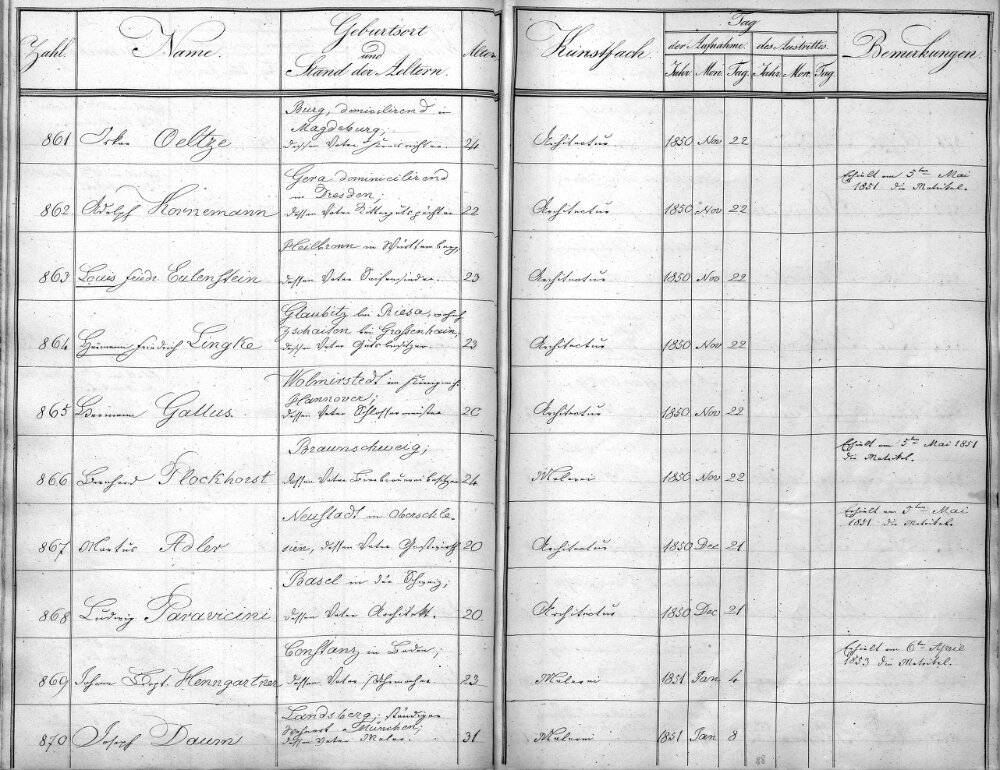 Zahl. Name. Geburtsort und Stand der Aeltern. Alter Kunstfach. Tag der Aufnahme. des Austrittes. Bemerkungen.
Jahr Mon. Tag. Jahr. Mon. Tag
Burg, domicilirend in
Magdeburg;
861 Oskar Oeltze dessen Vater 24 Architectur 1850 Nov 22
Gera dominicilirend
in Dresden;
862 Adolph Kornemann dessen Vater Rittergutspächter 22 Architectur 1850 Nov 22
Erhielt am 5ten Mai
1851 die Matrikel.
Heilbronn in Württemberg,
863 Louis Friedr. Eulenstein dessen Vater Seifensieder. 23 Architectur 1850 Nov 22
Glaubitz bei Riesa,
Zschaiten bei Großenhain,
864 Hermann Friedrich Lingke dessen Vater Gutsbesitzer. 23 Architectur 1850 Nov 22
Wolmirstedt im Königreich
Hannover;
865 Hermann Gallus. dessen Vater Schlossermeister 20 Architectur 1850 Nov 22
Braunschweig;
866 Bernhard Plockhorst dessen Vater 24 Malerei 1850 Nov 22
Erhielt am 5ten Mai 1851
die Matrikel.
Neustadt in Oberschle-
867 Markus Adler sien, dessen Vater Gastwirth 20 Architectur 1850 Dec 21
Erhielt am 5ten Mai
1851 die Matrikel.
Basel in der Schweiz;
868 Ludwig Paravicini dessen Vater Architekt. 20 Architectur 1850 Dec 21
Constanz in Baden;
869 Johann Bapt. Henngartner dessen Vater 23 Malerei 1851 Jan 4
Erhielt am 6ten April
1853 die Matrikel.
Landsberg; ständiger
München;
870 Joseph Daum dessen Vater Maler. 31 Malerei 1851 Jan 8
88